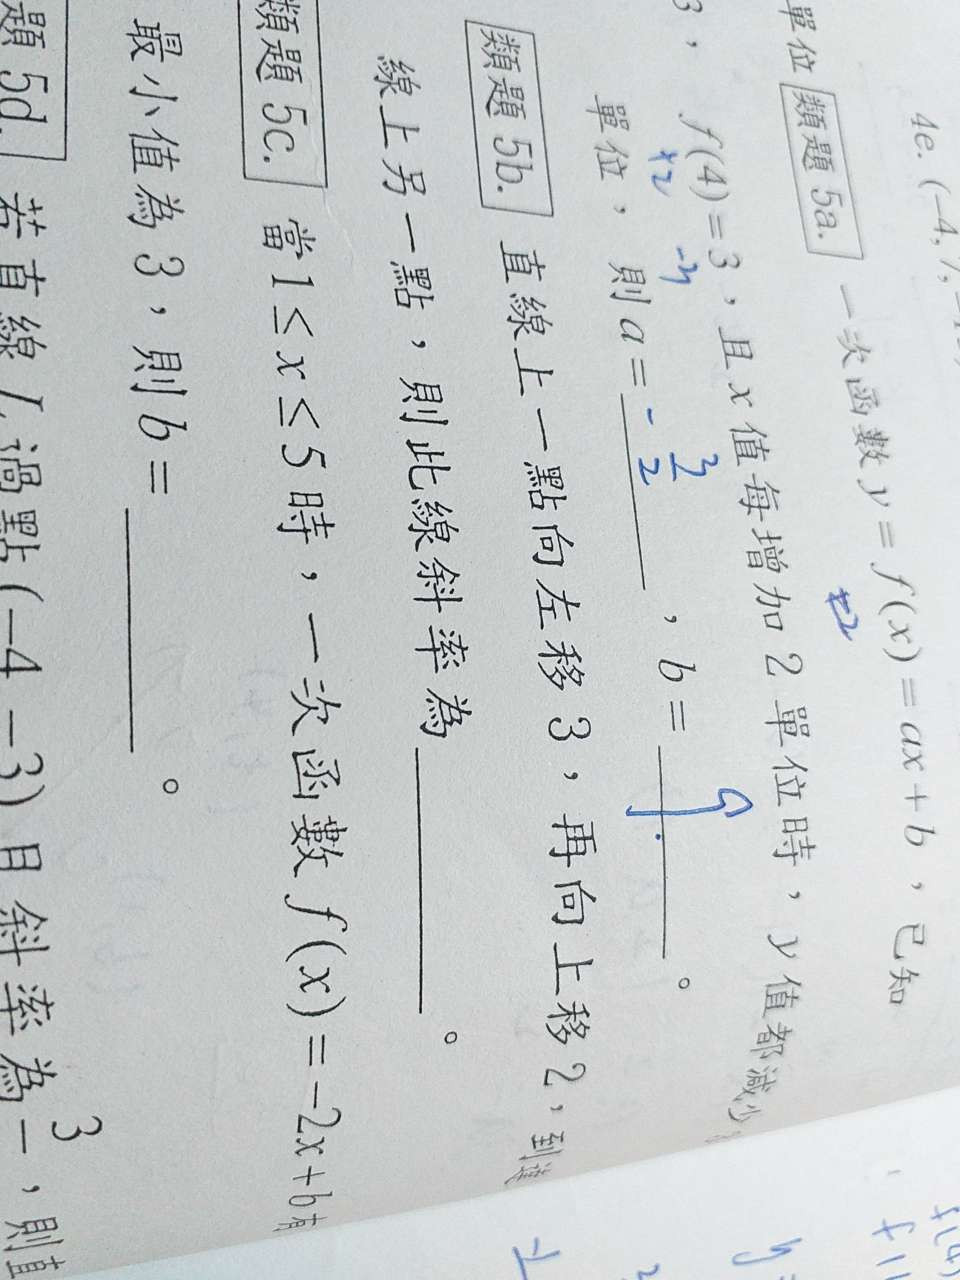 4e. (-4, 7,
單位
類題 5a. 一次函數 y = f(x) = ax + b，已知
+2
3， f(4) = 3，且 x 值每增加 2 單位時，y 值都減少
+2 -3
單位，則 a = -3/2，b = 9。
類題 5b. 直線上一點向左移 3，再向上移 2，到達
線上另一點，則此線斜率為。
類題 5c. 當 1 ≤ x ≤ 5 時，一次函數 f(x) = -2x + b 有
最小值為 3，則 b = 。
題 5d. 若直線 L 過點 (-4 -3) 且斜率為 3，則直
f(4)